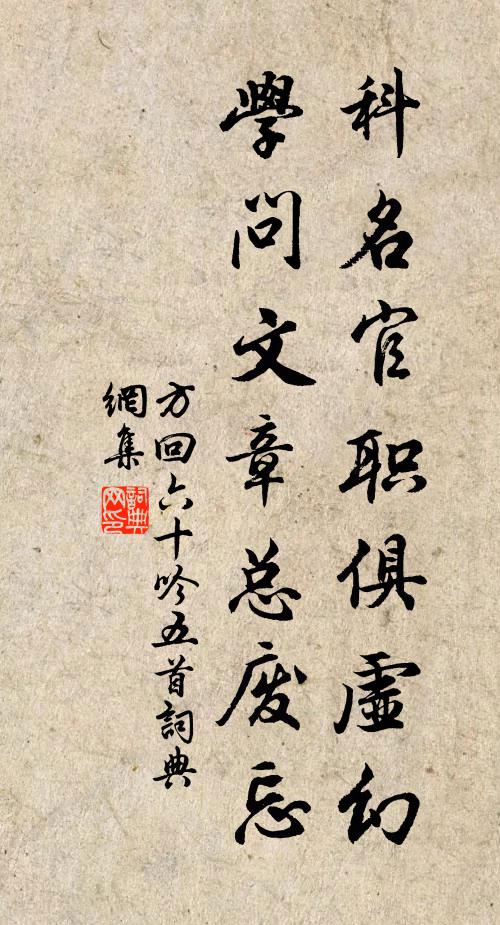 科名官职俱虛幻
學问文章总废忘
方回六十吟五首詞典
網集
詞典
网印